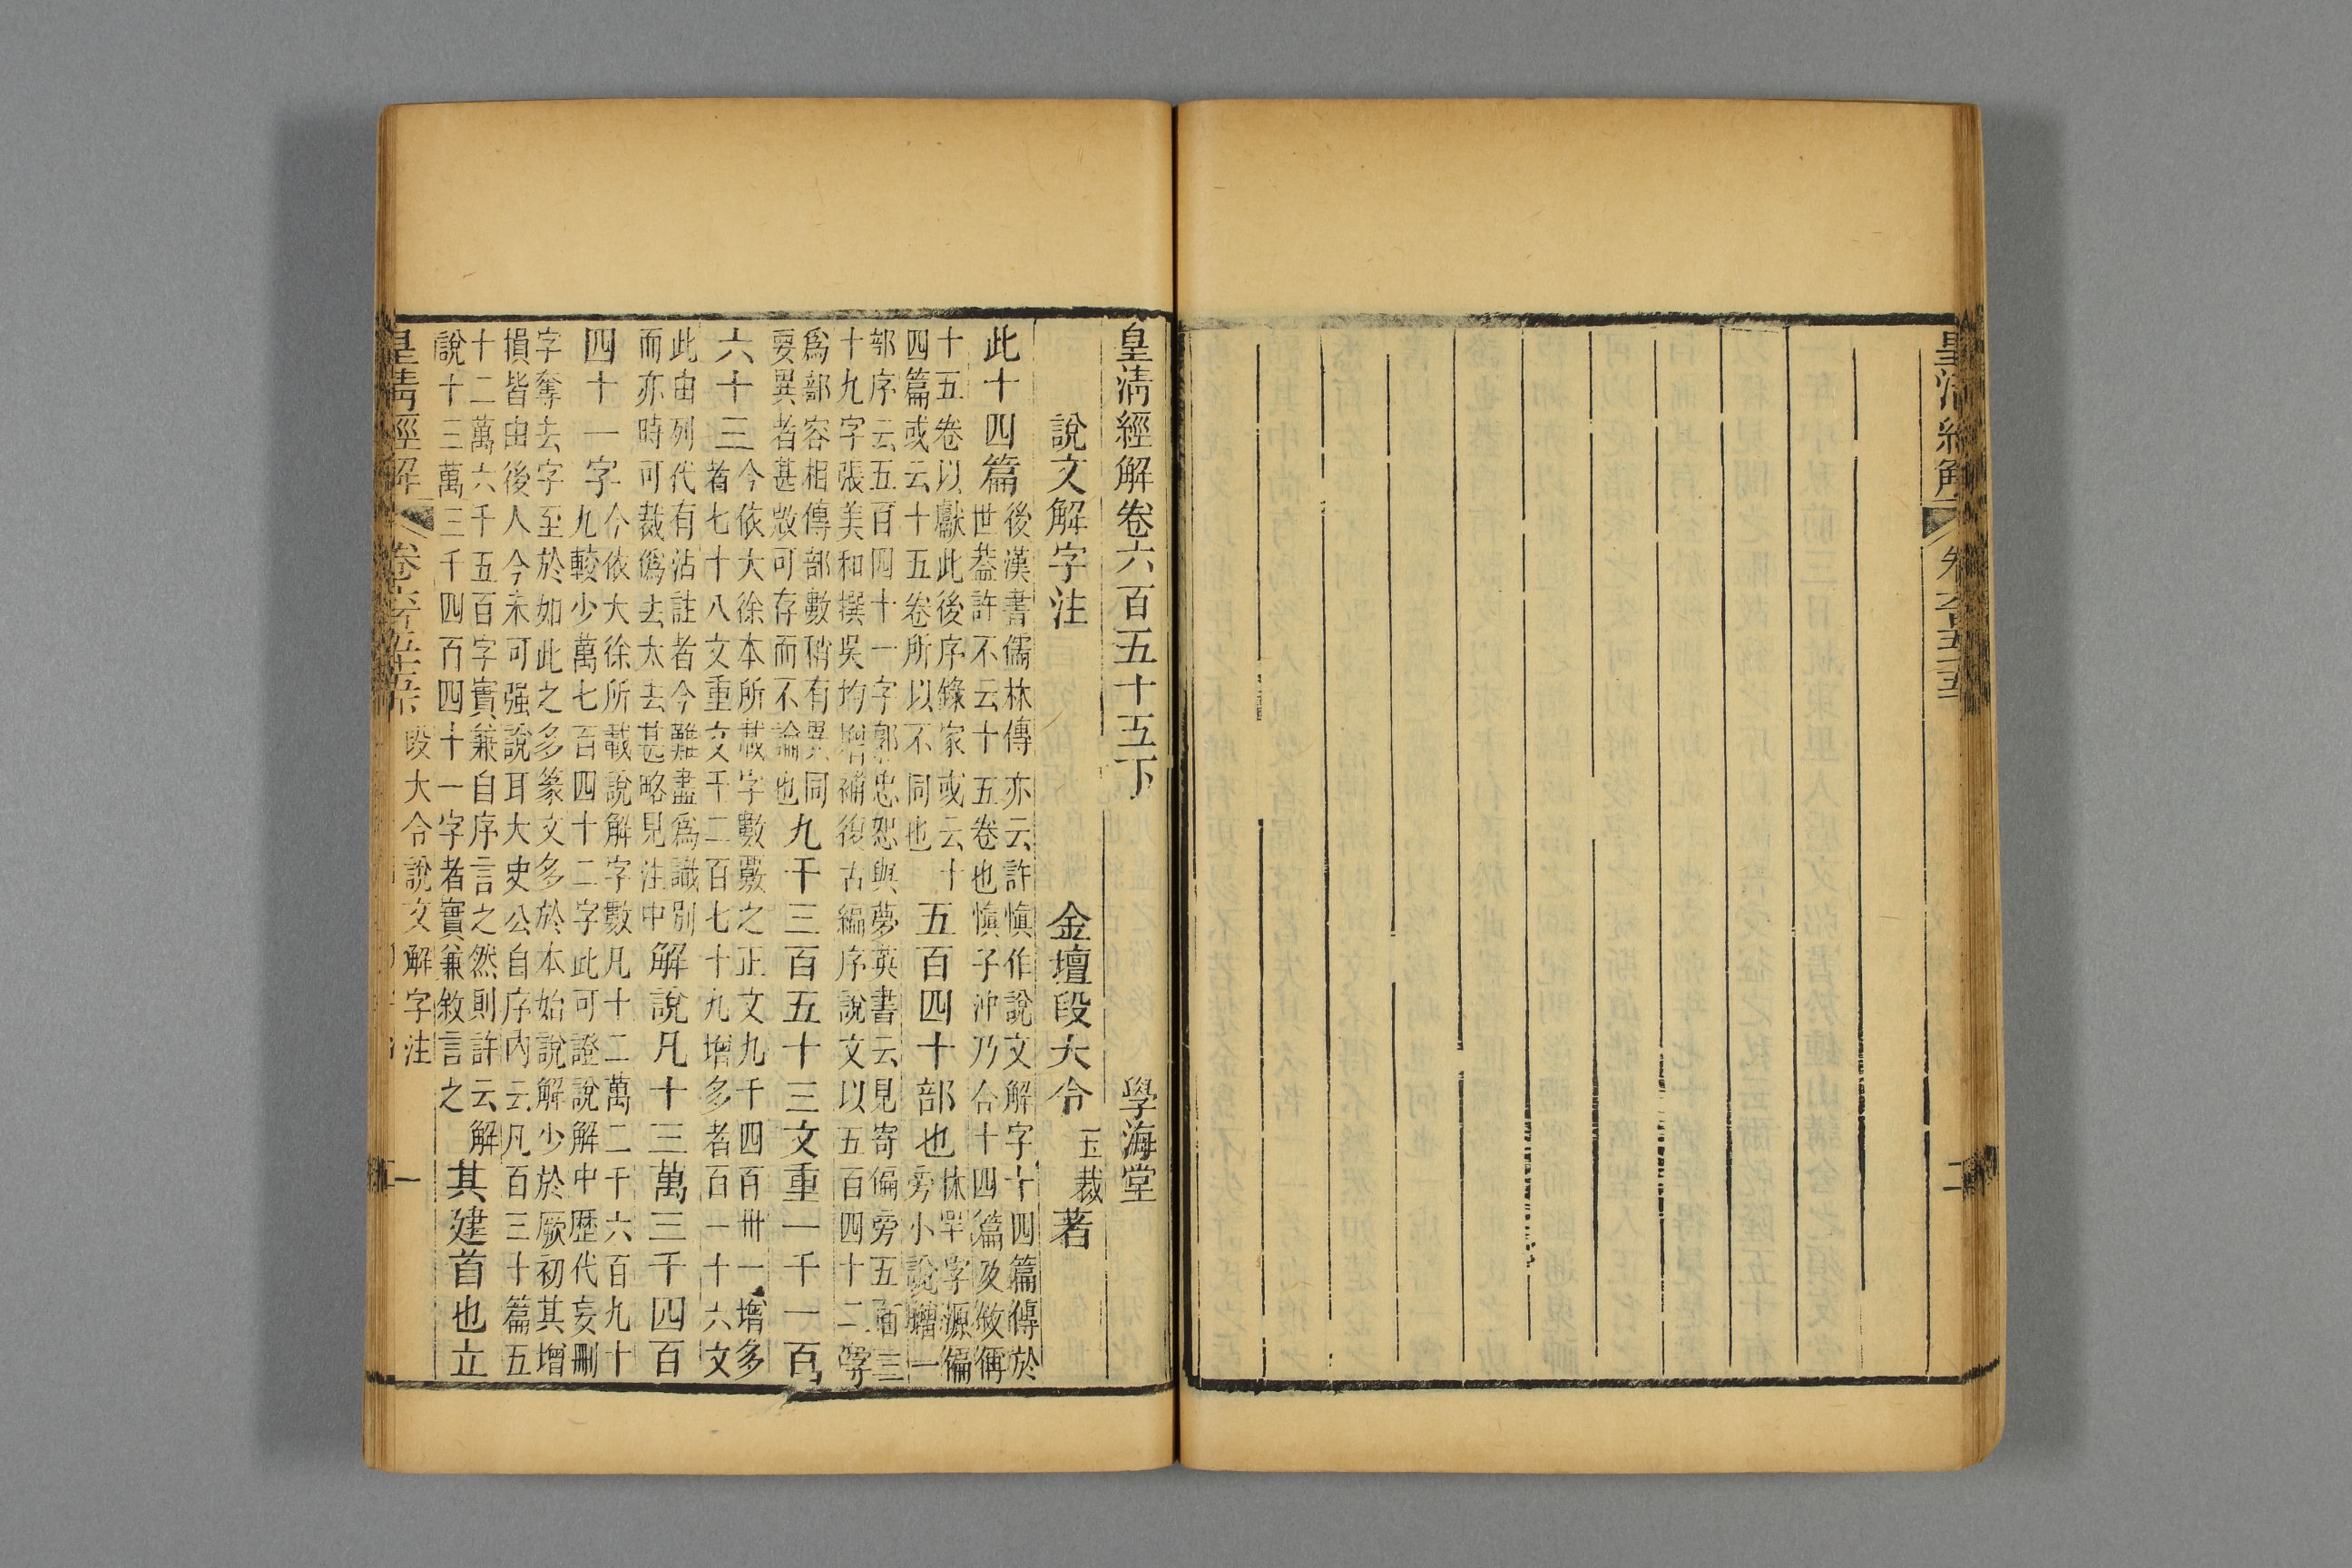 皇清經解 卷六百五十五 二
皇清經解卷六百五十五下 學海堂
說文解字注 金壇段大令玉裁著
此十四篇
後漢書儒林傳亦云許愼作說文解字十四篇傳於
世葢許不云十五卷也愼子沖乃合十四篇及敘偁
十五卷以獻此後序錄家或云十
四篇或云十五卷所以不同也
五百四十部也
林罕字源偏
旁小說增一
部序云五百四十一字郭忠恕與夢英書云見寄偏旁五百三
十九字張美和撰吳均增補復古編序說文以五百四十二字
爲部容相傳部數稍有異同
要異者甚可存而不論也
九千三百五十三文重一千一百
六十三
今依大徐本所載字數覈之正文九千四百卅一增多
者七十八文重文千二百七十九增多者百一十六文
此由列代有沾註者今難盡爲識別
而亦時可裁僞去太去甚略見注中
解說凡十三萬三千四百
四十一字
今依大徐所載說解字數凡十二萬二千六百九十
九較少萬七百四十二字此可證說解中歷代妄刪
字奪去字至於如此之多篆文多於本始說解少於厥初其增
損皆由後人今未可强說耳大史公自序内云凡百三十篇五
十二萬六千五百字實兼自序言之然則許云解
說十三萬三千四百四十一字者實兼敘言之
其建首也立
皇清經解 卷六百五十五 段大令說文解字注 一